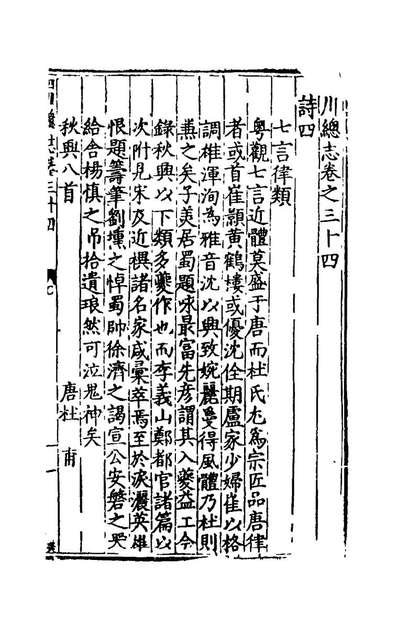 川總志卷之三十四
詩四
七言律類
粵觀七言近體莫盛于唐而杜氏尤為宗匠品唐律
者或首崔顥黃鶴樓或優沈佺期盧家少婦崔以格
調雄渾洵為雅音沈以興致婉麗曼得風體乃杜則
兼之矣子美居蜀題咏最富先彥謂其入夔益工今
錄秋興以下類多夔作也而李義山鄭都官諸篇以
次附見宋及近禩諸名家咸彙萃焉至於淚灑英雄
恨題籌筆劉壎之悼蜀帥徐濟之謁宣公安磐之哭
給舍楊慎之弔拾遺琅然可泣鬼神矣
秋興八首 唐杜甫
四川總志卷三十四